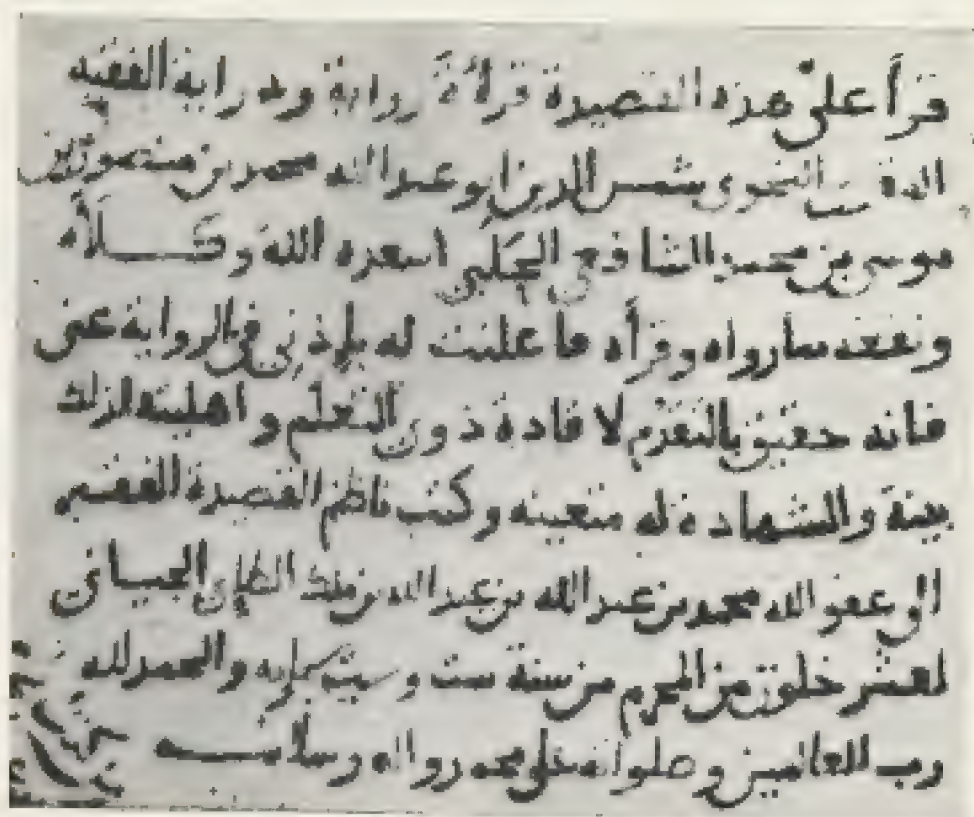 قرأ علىّ هذه القصيدة قراءة رواية ودراية الفقيه
النحوى شمس الدين ابو عبد الله محمد بن
موسى بن محمد الشافعى اسعده الله وكلأه
ونفعه بما رواه وقرأه ما علمت له باذنى فى الرواية عنى
فانه حقيق بالتقدم لافادة ذوى التعلم واهليته لذلك
بينة والشهادة له متعينة وكتب ناظم القصيدة الفقير
الى عفو الله محمد بن عبد الله بن عبد الله بن ملك الطائى الجيانى
لعشر خلون من المحرم من سنة ست وستمائة والحمد لله
رب العالمين وصلواته على محمد واله وسلامه